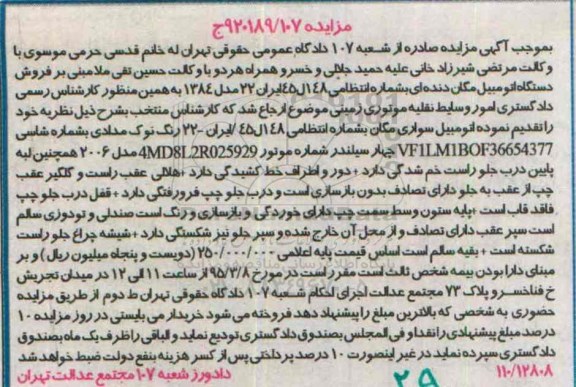 مزایده ۹۲۰۱۸۹/۱۰۷ج
بموجب آگهی مزایده صادره از شعبه ۱۰۷ دادگاه عمومی حقوقی تهران له خانم قدسی حرمی موسوی با
وکالت مرتضی شیرزاد خانی علیه حمید جلالی و خسرو همراه هردو با وکالت حسین تقی ملا مبنی بر فروش
دستگاه اتومبیل مگان دنده ای بشماره انتظامی ۱۴۸ل۴۵ایران۲۲ مدل ۱۳۸۴ به همین منظور کارشناس رسمی
دادگستری امور وسایط نقلیه موتوری زمینی موضوع ارجاع شد که کارشناس منتخب بشرح ذیل نظریه خود
را تقدیم نموده اتومبیل سواری مگان بشماره انتظامی ۱۴۸ل۴۵ /ایران -۲۲ رنگ نوک مدادی بشماره شاسی
VF1LM1BOF36654377 چهار سیلندر شماره موتور 4MD8L2R025929 مدل ۲۰۰۶ همچنین لبه
پایین درب جلو راست خم شدگی دارد +دور و اطراف خط کشیدگی دارد +هلالی عقب راست و گلگیر عقب
چپ از عقب به جلو دارای تصادف بدون بازسازی است و درب جلو چپ فرورفتگی دارد +قفل درب جلو چپ
فاقد قاب است +پایه ستون وسط سمت چپ دارای خوردگی و بازسازی و رنگ است صندلی و تودوزی سالم
است سپر عقب دارای تصادف و از محل آن خارج شده و سپر جلو نیز شکستگی دارد +شیشه چراغ جلو راست
شکسته است +بقیه سالم است اساس قیمت پایه اعلامی ۲۵۰/۰۰۰/۰۰۰ (دویست و پنجاه میلیون ریال) و بر
مبنای دارا بودن بیمه شخص ثالث است مقرر است در مورخ ۹۵/۳/۸ از ساعت ۱۱ الی ۱۲ در میدان تجریش
خ فناخسرو پلاک ۷۳ مجتمع عدالت اجرای احکام شعبه ۱۰۷ دادگاه حقوقی تهران ط دوم از طریق مزایده
حضوری به شخصی که بالاترین مبلغ را پیشنهاد دهد فروخته می شود خریدار می بایستی در روز مزایده ۱۰
درصد مبلغ پیشنهادی را نقدا و فی المجلس بصندوق دادگستری تودیع نماید و الباقی را ظرف یک ماه بصندوق
دادگستری سپرده نماید در غیر اینصورت ۱۰ درصد پرداختی پس از کسر هزینه بنفع دولت ضبط خواهد شد
۱۱۰/۱۲۸۰۸ دادورز شعبه ۱۰۷ مجتمع عدالت تهران
۲۹